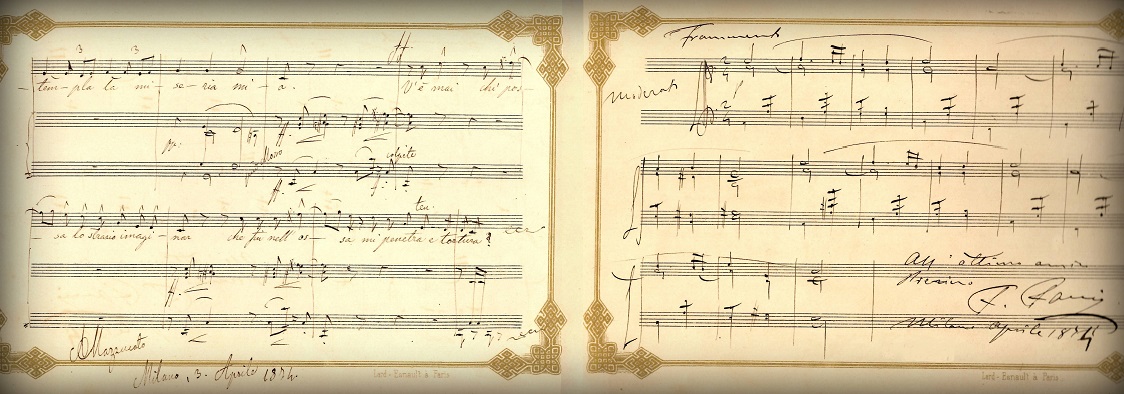 3 3
ff.
tem-pla la mi- se-ria mi- a. V'è mai chi pos-
ff.
ff.
ff.
ten.
sa lo strazio imagi- nar che fin nell' os- sa mi penetra e tortura?
ff.
Mazzucato
Milano, 3. Aprile 1874.
Lard-Esnault à Paris
Frammento
Moderato
All' ottimo amico
Milano Aprile 1874
Lard-Esnault à Paris